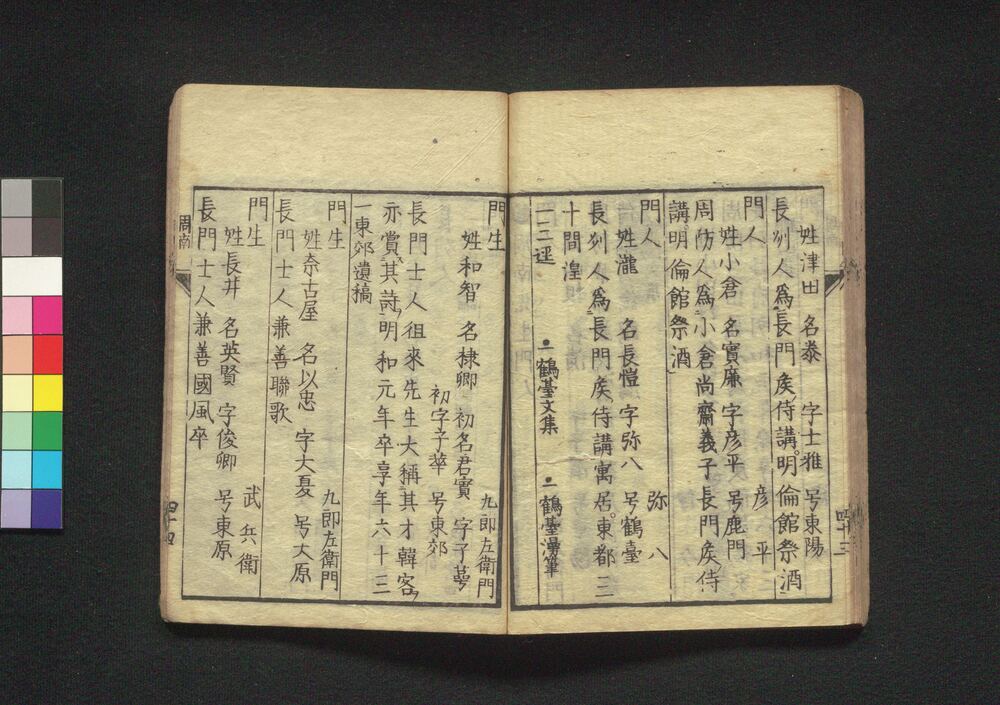 姓津田 名泰 字士雅 号東陽
長刕人為長門侯侍講明倫館祭酒
門人 彦平
姓小倉 名實廉 字彦平 号鹿門
周防人為小倉尚齋義子長門侯侍
講明倫館祭酒
門人 弥八
姓瀧 名長愷 字弥八 号鶴臺
長刕人為長門侯侍講寓居東都三
十間湟
一二三逕 鶴臺文集 鶴臺漫筆
四十三
門生 九郎左衛門
姓和智 名棣卿 初名君實 字子萼
初字子華 号東郊
長門士人徂來先生大稱其才韓客
亦賞其詩明和元年卒享年六十三
一東郊遺稿
門生 九郎左衛門
姓奈古屋 名以忠 字大夏 号大原
長門士人兼善聯歌
門生 武兵衛
姓長井 名英賢 字俊卿 号東原
長門士人兼善國風卒
周南
四十四